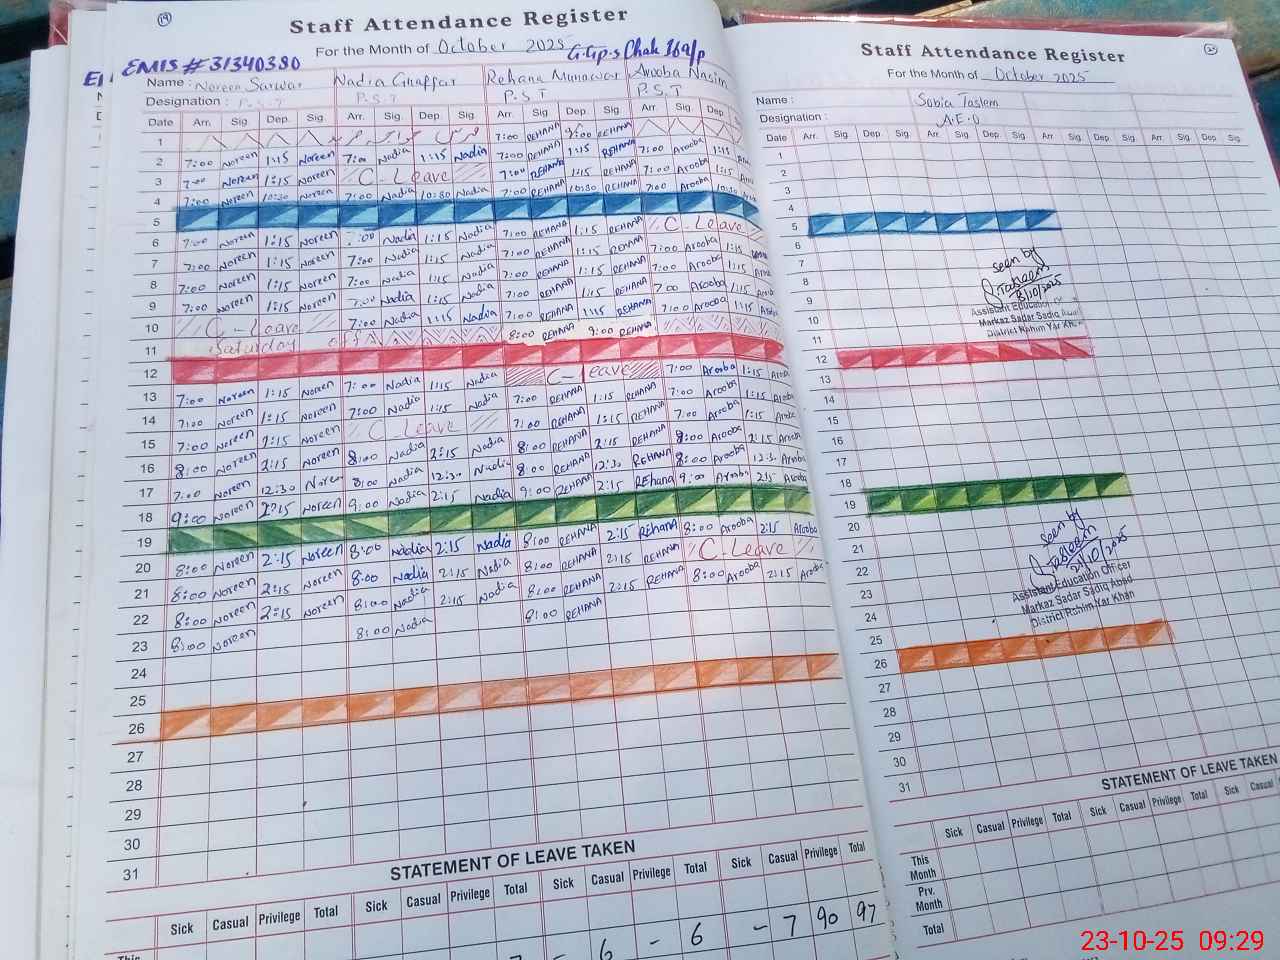 19
Staff Attendance Register
For the Month of October 2025
G.G.p.s Chak 169/p
EMIS # 31340380
Name : Noreen Sarwar Nadia Ghaffar Rehana Munawar Arooba Nasim
Designation : P.S.T P.S.T P.S.T P.S.T
Date Arr. Sig. Dep. Sig. Arr. Sig. Dep. Sig. Arr. Sig. Dep. Sig. Arr. Sig. Dep.
1 7:00 REHANA 9:00 REHANA
2 7:00 Noreen 1:15 Noreen 7:00 Nadia 1:15 Nadia 7:00 REHANA 1:15 REHANA 7:00 Arooba 1:15
3 7:00 Noreen 1:15 Noreen C-Leave 7:00 REHANA 1:15 REHANA 7:00 Arooba 1:15
4 7:00 Noreen 10:30 Noreen 7:00 Nadia 10:30 Nadia 7:00 REHANA 10:30 REHANA 7:00 Arooba 10:30
5
6 7:00 Noreen 1:15 Noreen 7:00 Nadia 1:15 Nadia 7:00 REHANA 1:15 REHANA C-Leave
7 7:00 Noreen 1:15 Noreen 7:00 Nadia 1:15 Nadia 7:00 REHANA 1:15 REHANA 7:00 Arooba 1:15
8 7:00 Noreen 1:15 Noreen 7:00 Nadia 1:15 Nadia 7:00 REHANA 1:15 REHANA 7:00 Arooba 1:15
9 7:00 Noreen 1:15 Noreen 7:00 Nadia 1:15 Nadia 7:00 REHANA 1:15 REHANA 7:00 Arooba 1:15
10 C-Leave 7:00 Nadia 1:15 Nadia 7:00 REHANA 1:15 REHANA 7:00 Arooba 1:15
11 Saturday off 8:00 REHANA 9:00 REHANA
12
13 7:00 Noreen 1:15 Noreen 7:00 Nadia 1:15 Nadia C-Leave 7:00 Arooba 1:15
14 7:00 Noreen 1:15 Noreen 7:00 Nadia 1:15 Nadia 7:00 REHANA 1:15 REHANA 7:00 Arooba 1:15
15 7:00 Noreen 2:15 Noreen C-Leave 7:00 REHANA 1:15 REHANA 7:00 Arooba 1:15
16 8:00 Noreen 2:15 Noreen 8:00 Nadia 2:15 Nadia 8:00 REHANA 2:15 REHANA 8:00 Arooba 2:15 Arooba
17 7:00 Noreen 12:30 Noreen 8:00 Nadia 12:30 Nadia 8:00 REHANA 12:30 REHANA 8:00 Arooba 12:30 Arooba
18 9:00 Noreen 2:15 Noreen 9:00 Nadia 2:15 Nadia 9:00 REHANA 2:15 REHANA 9:00 Arooba 2:15 Arooba
19
20 8:00 Noreen 2:15 Noreen 8:00 Nadia 2:15 Nadia 8:00 REHANA 2:15 REHANA 8:00 Arooba 2:15 Arooba
21 8:00 Noreen 2:15 Noreen 8:00 Nadia 2:15 Nadia 8:00 REHANA 2:15 REHANA C-Leave
22 8:00 Noreen 2:15 Noreen 8:00 Nadia 2:15 Nadia 8:00 REHANA 2:15 REHANA 8:00 Arooba 2:15 Arooba
23 8:00 Noreen 8:00 Nadia 8:00 REHANA
24
25
26
27
28
29
30
31
STATEMENT OF LEAVE TAKEN
Sick Casual Privilege Total Sick Casual Privilege Total Sick Casual Privilege Total Sick Casual Privilege Total
6 - 6 - 7 90 97
Staff Attendance Register
For the Month of October 2025
Name : Sobia Taslem
Designation : A.E.O
Date Arr. Sig. Dep. Sig. Arr. Sig. Dep. Sig. Arr. Sig. Dep. Sig. Arr. Sig. Dep. Sig.
1
2
3
4
5
6
7
8
9
10
11
12
13
14
15
16
17
18
19
20
21
22
23
24
25
26
27
28
29
30
31
seen by
8/10/2025
Assistant Education
Markaz Sadar Sadiq
District Rahim Yar Khan
seen by
Tasleem
21/10/2025
Assistant Education Officer
Markaz Sadar Sadiq Abad
District Rahim Yar Khan
STATEMENT OF LEAVE TAKEN
Sick Casual Privilege Total Sick Casual Privilege Total Sick Casual
This Month
Prv. Month
Total
23-10-25 09:29